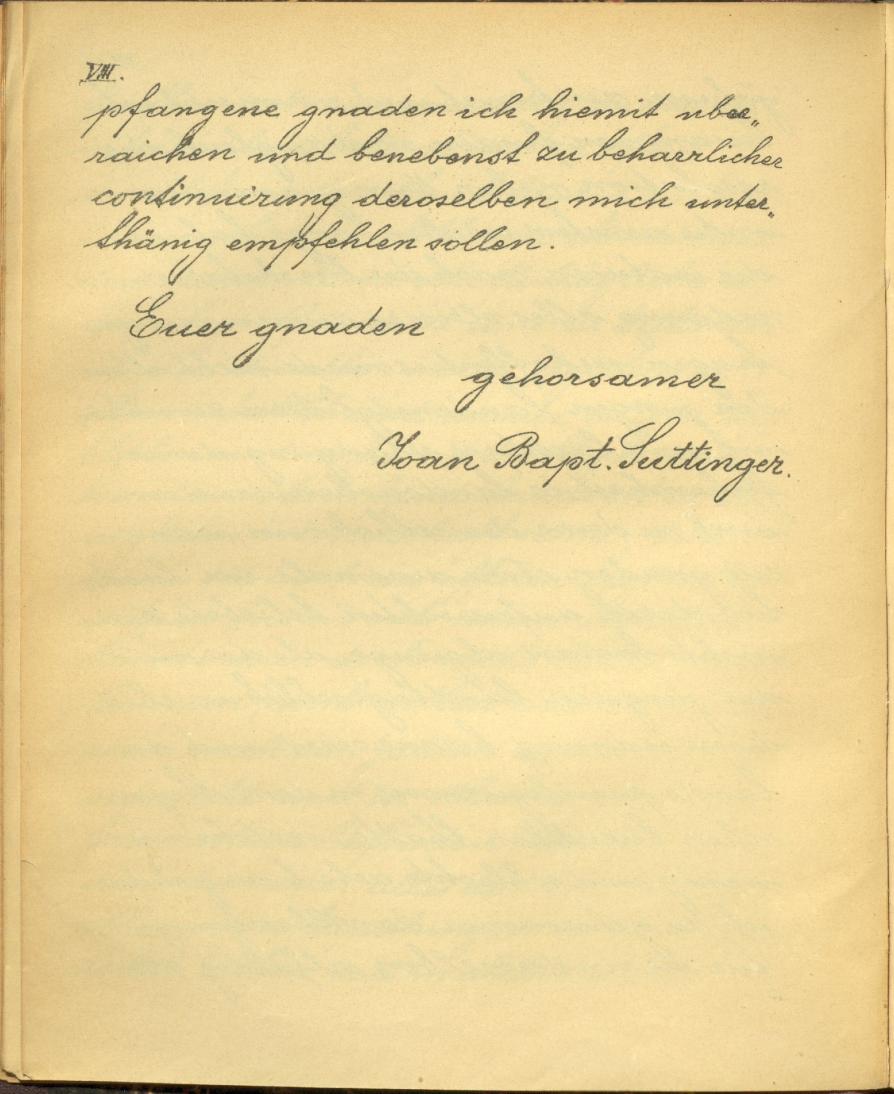 VIII.
pfangene gnaden ich hiemit uber„
raichen und benebenst zu beharrlicher
continuirung deroselben mich unter„
thänig empfehlen sollen.
Euer gnaden
gehorsamer
Joan Bapt. Suttinger.